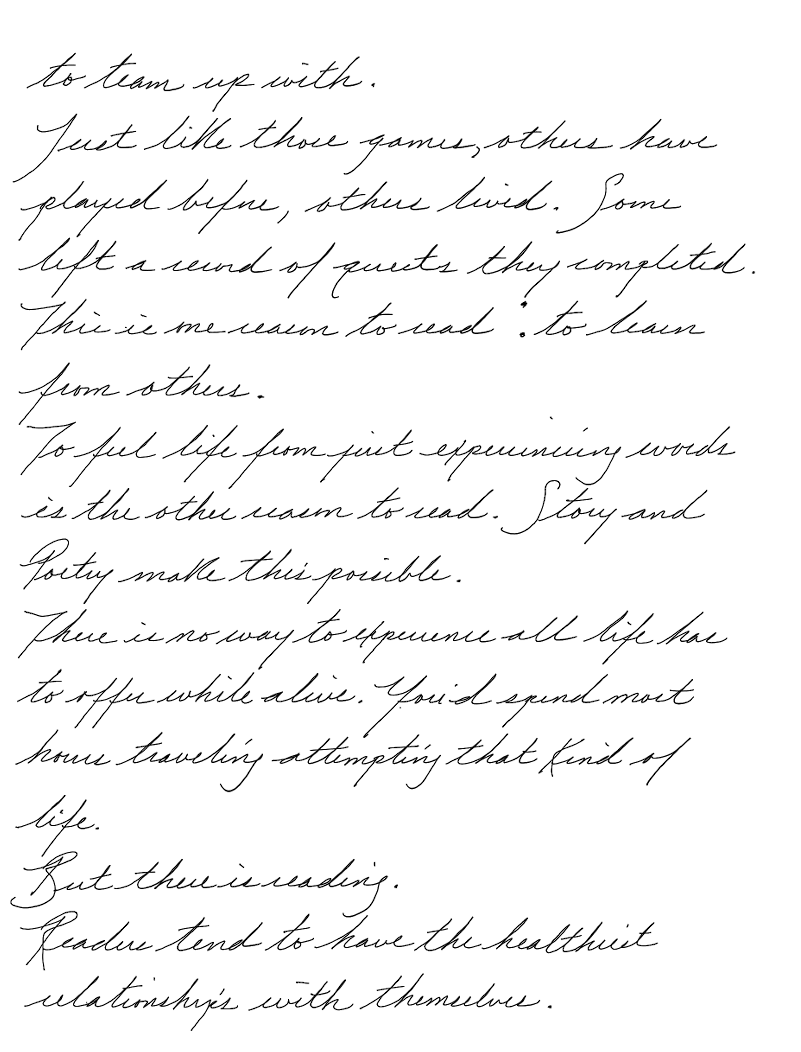 to team up with.
Just like those games, others have
played before, others lived. Some
left a record of quests they completed.
This is one reason to read : to learn
from others.
To feel life from just experiencing words
is the other reason to read. Story and
Poetry make this possible.
There is no way to experience all life has
to offer while alive. You'd spend most
hours traveling attempting that kind of
life.
But there is reading.
Readers tend to have the healthiest
relationships with themselves.